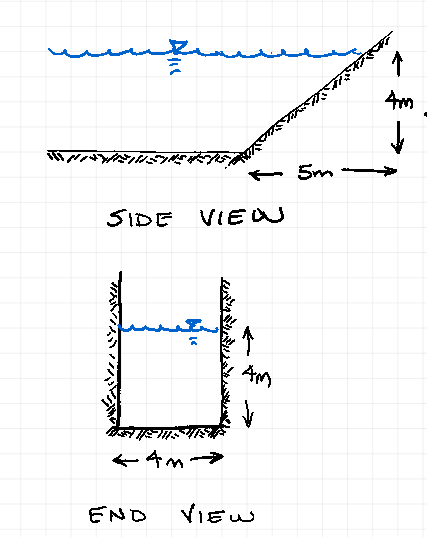 4m
5m
SIDE VIEW
4m
4m
END VIEW